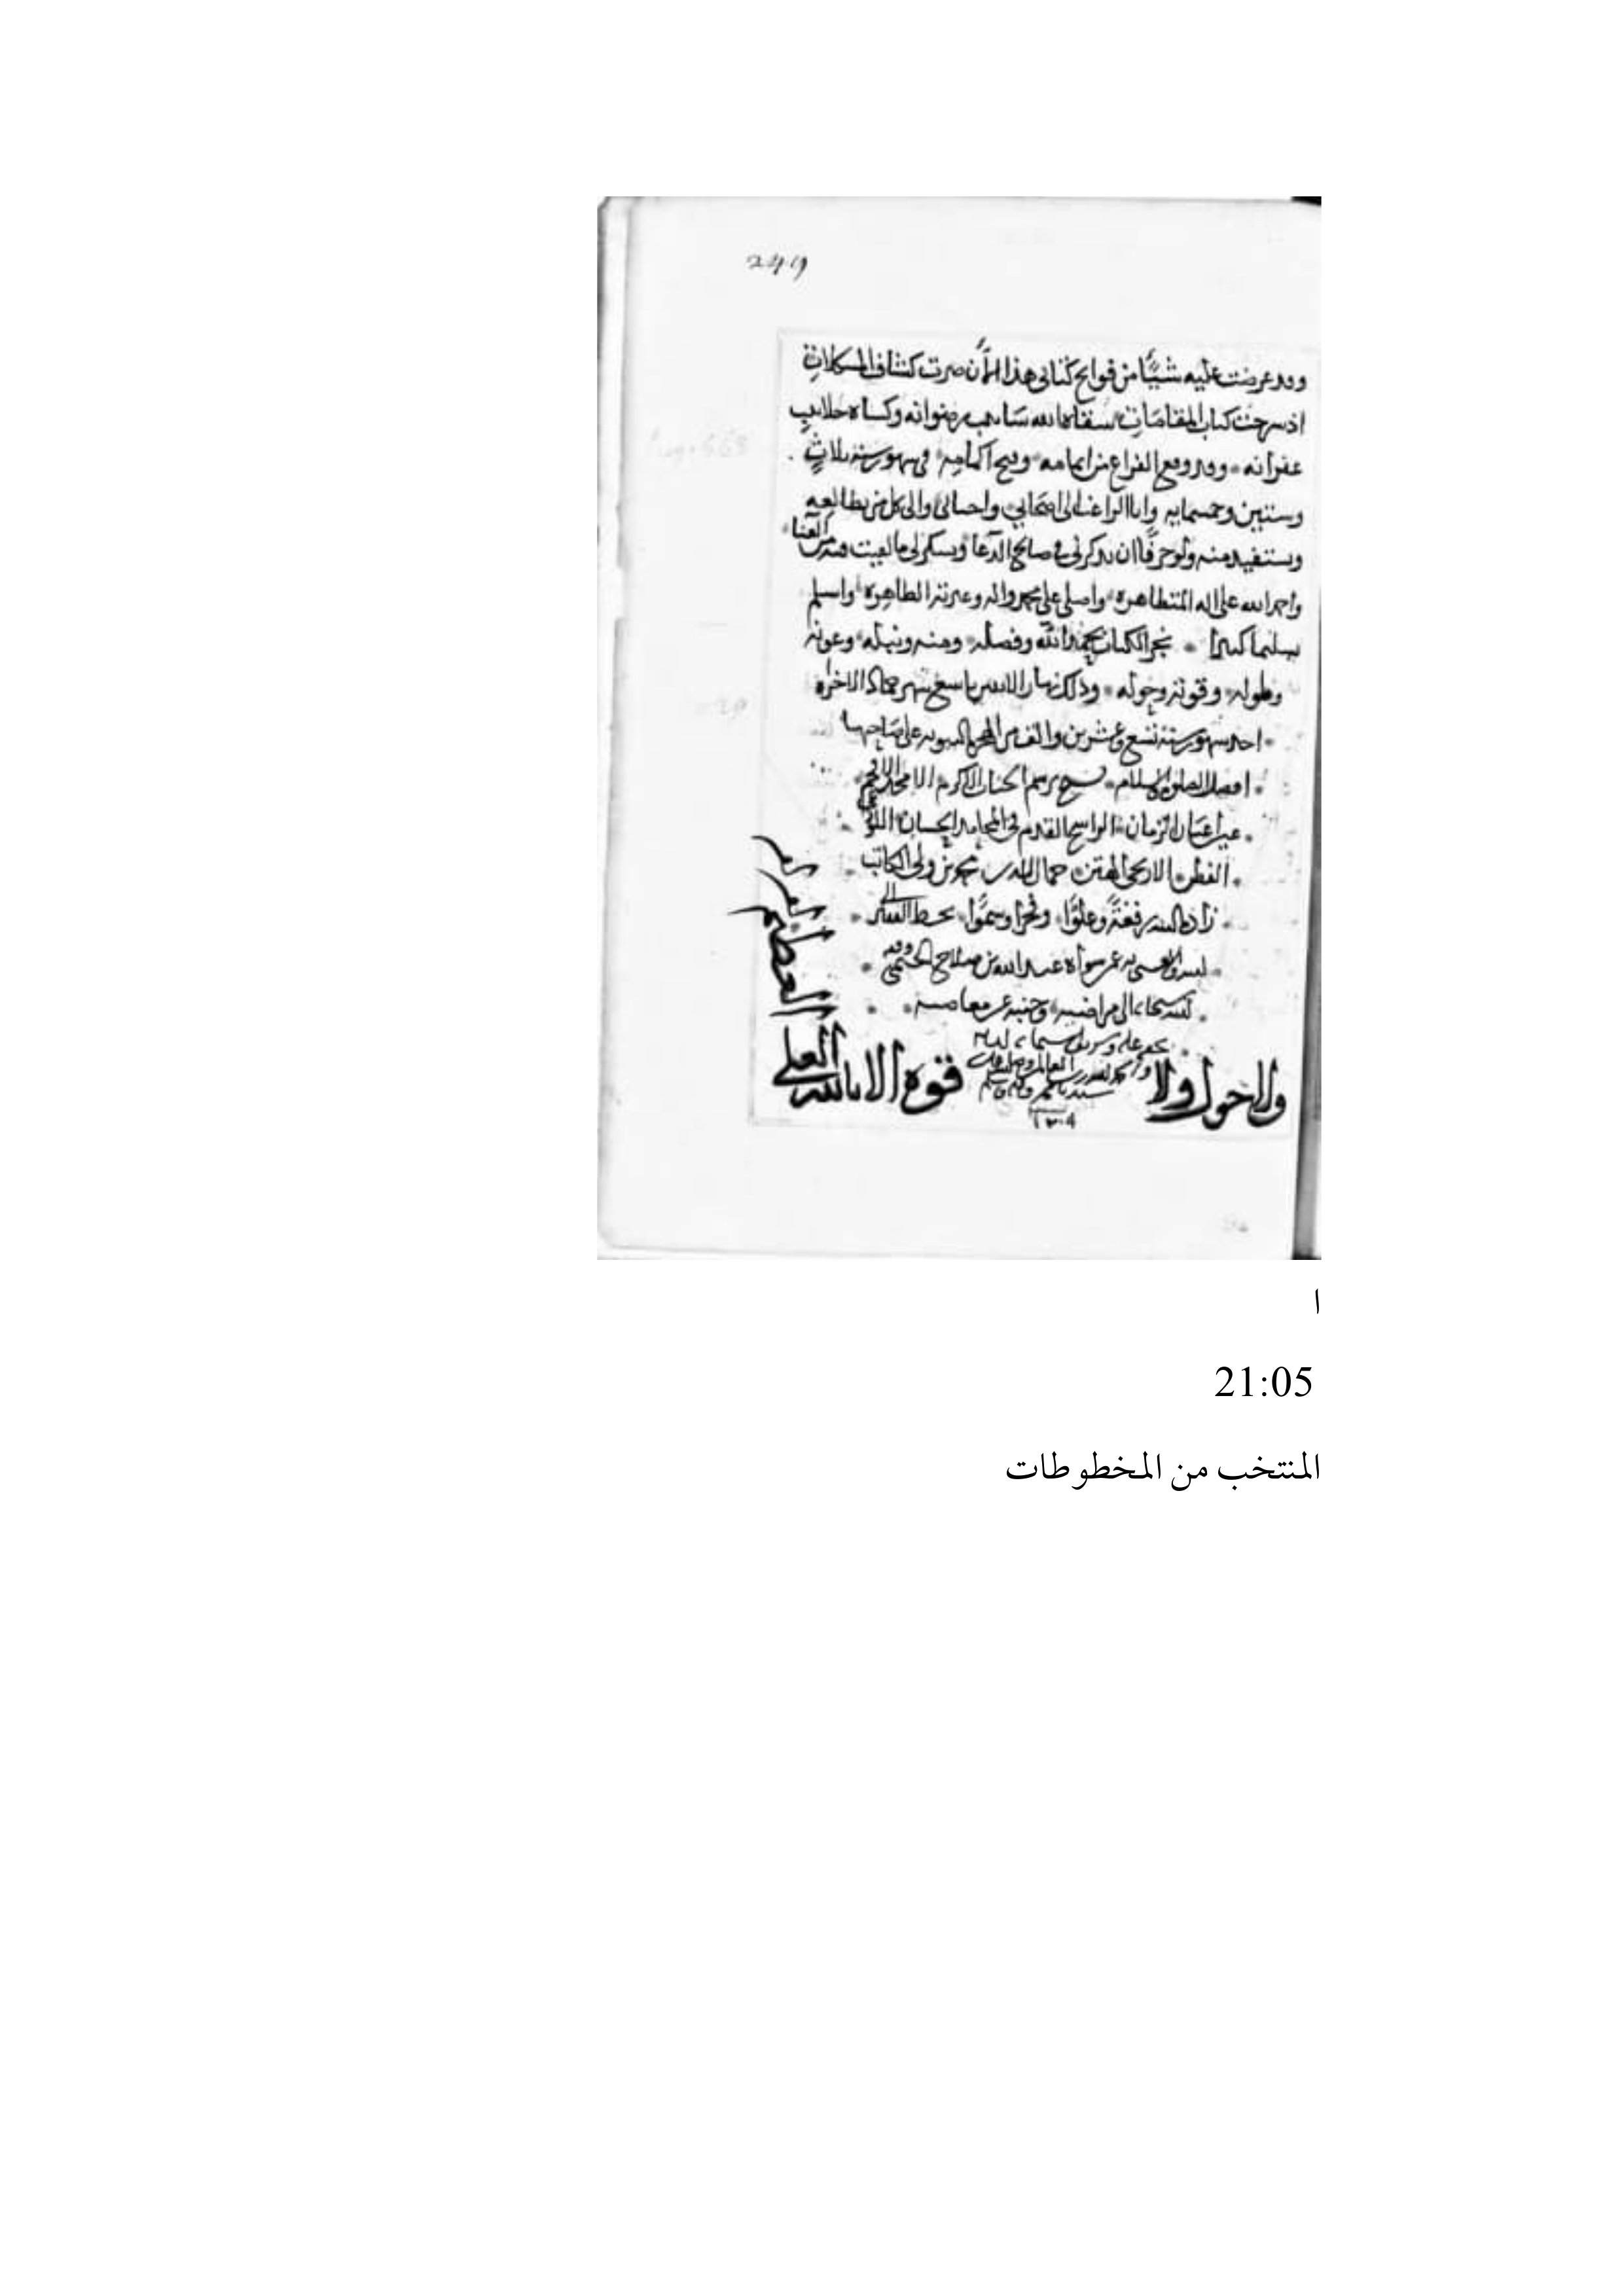 249
وقد عرضت عليه شيئًا من فواتح كتابي هذا الآن صرت كشاف المشكلات
اذ شرحت كتاب المقامات سقاه الله شآبيب رضوانه وكساه جلابيب
غفرانه وقد وقع الفراغ من اتمامه وفتح اكمامه في شهور سنة ثلاث
وستين وخمسمايه وانا الراغب الى اصحابي واحبائي والى كل من يطالعه
ويستفيد منه ولو حرفًا ان يذكرني في صالح الدعا ويشكر لي ما لقيت فيه من العنا
واحمد الله على اله المتظاهرة واصلي على محمد واله وعترته الطاهرة واسلم
تسليما كثيرا نجز الكتاب بحمد الله وفضله ومنه ونيله وعونه
وطوله وقوته وحوله وذلك نهار الاثنين تاسع شهر جمادى الاخرة
احد شهور سنة تسع وعشرين والف من الهجرة النبويه على صاحبها
افضل الصلوة والسلام برسم الجناب الاكرم الامجد الافخم
عين اعيان الزمان الراسخ القدم في المحامد الحسان
الفطن الاريحي المتقن جمال الدين محمد بن ولي الكاتب
زاده الله رفعةً وعلوًا وفخرا وسموًا بخط الفقير الى
الله والغني به عمن سواه عبد الله بن صلاح وفقه
الله سبحانه الى مراضيه وجنبه عن معاصيه
والحمد لله رب العالمين وصلى الله على
سيدنا محمد وآله وسلم
ولا حول ولا قوة الا بالله العلي
العظيم
ا
21:05
المنتخب من المخطوطات